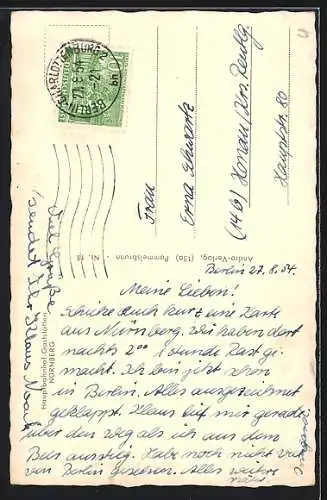 BERLIN-CHARLOTTENBURG 2
27.8.54.-21
bub
Frau
Erna Schwartz
(14b) Honau/Krs. Reutlg.
Hauptstr. 80
Andro-Verlag, (13a) Pommelsbrunn · Nr. 18
Hauptbahnhof-Gaststätten
NÜRNBERG
Berlin 27.8.54.
Meine Lieben!
Schicke Euch kurz eine Karte
aus Nürnberg. Wir haben dort
nachts 2⁰⁰ 1 Stunde Rast ge-
macht. Ich bin jetzt schon
in Berlin. Alles ausgezeichnet
geklappt. Klaus lief mir gerade
über den Weg als ich aus dem
Bus ausstieg. Hab noch nicht viel
von Berlin gesehen. Alles weitere
Viele Grüße
sendet Euer Klaus